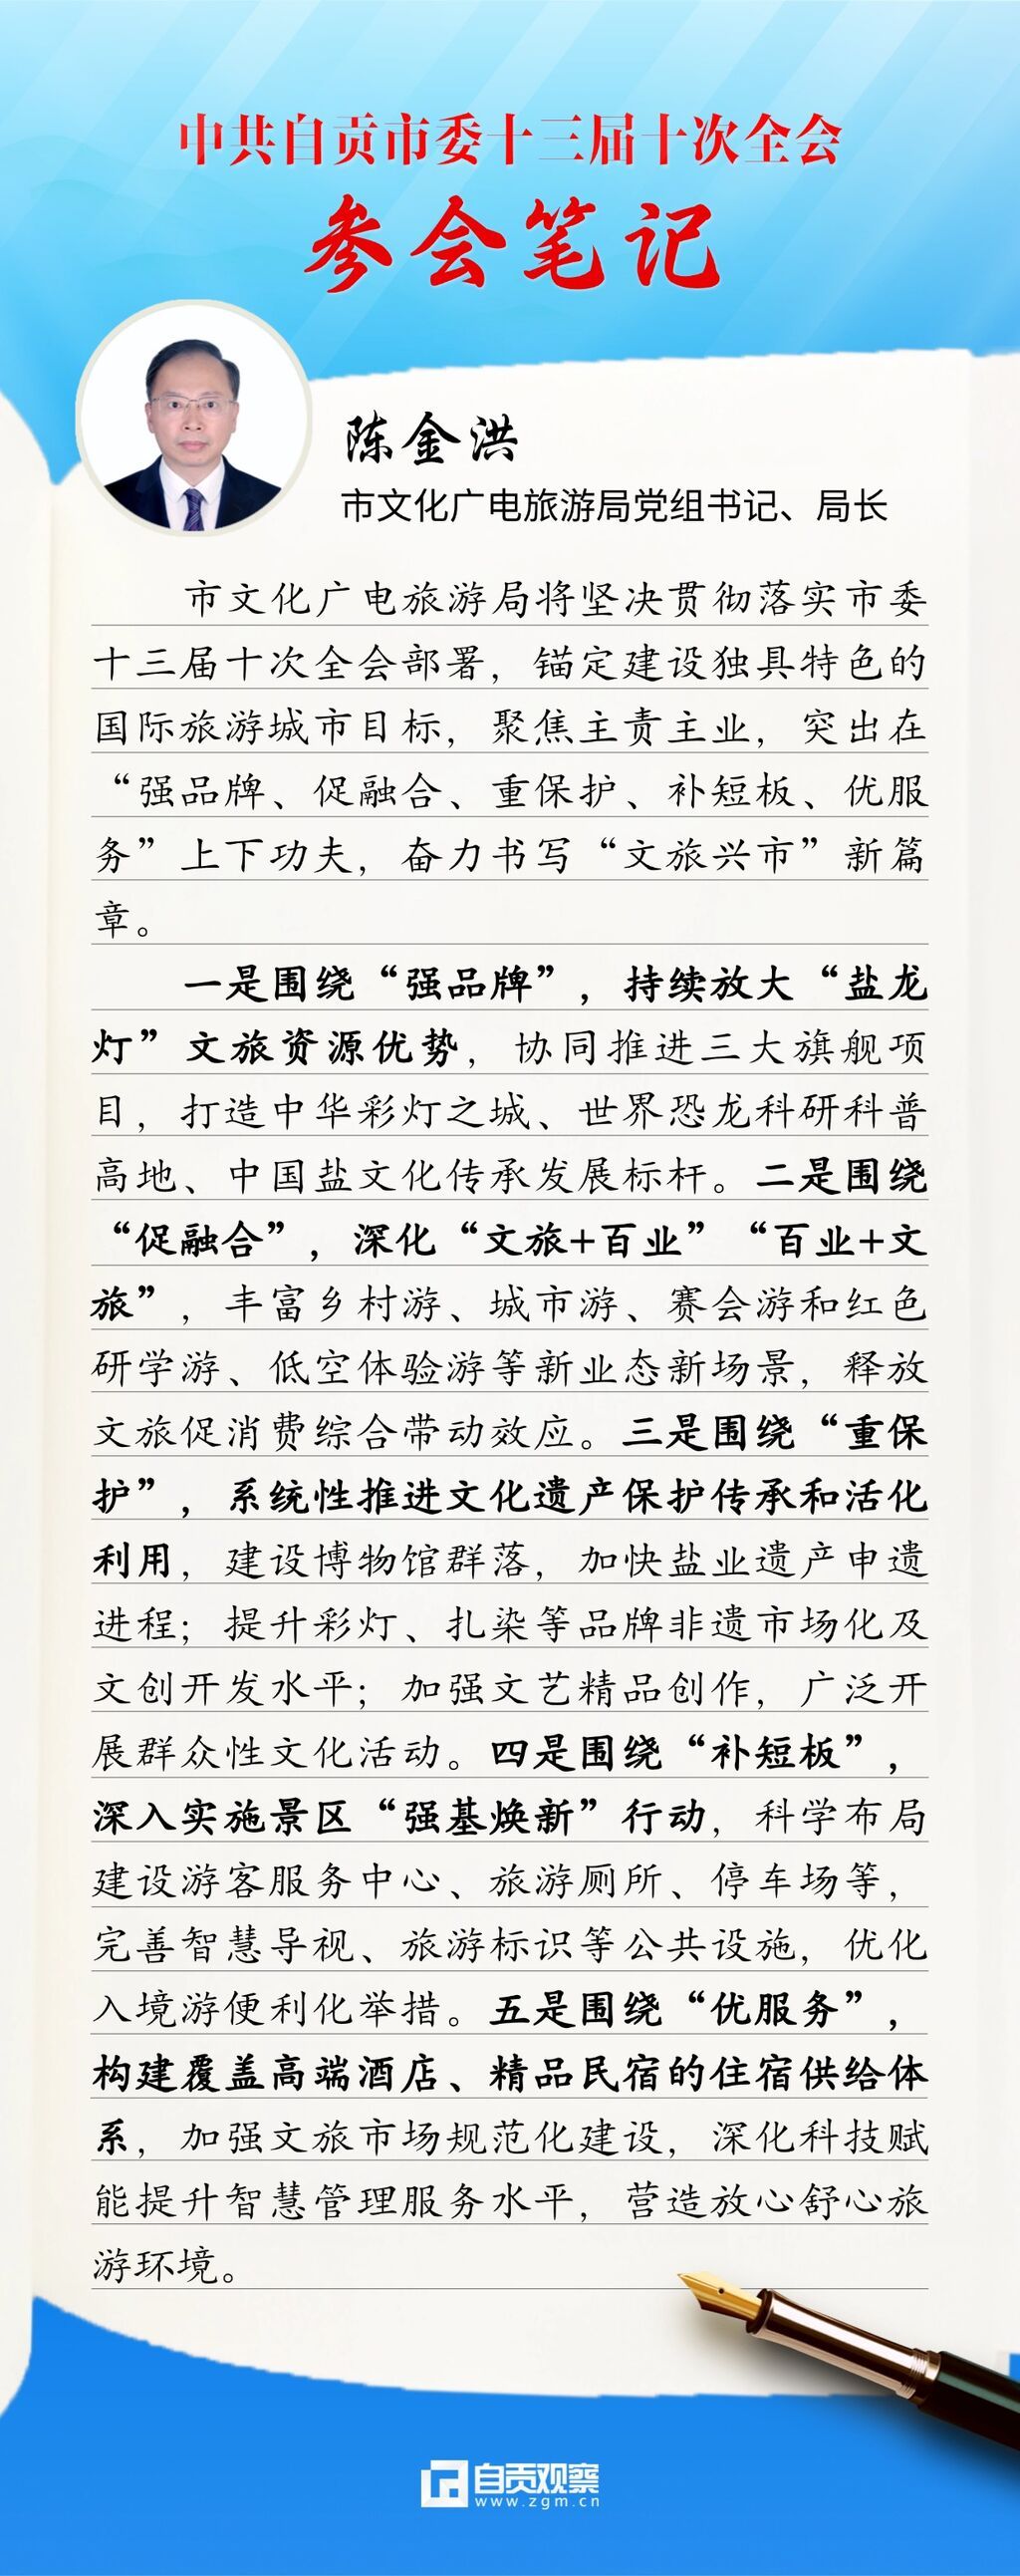 中共自贡市委十三届十次全会
参会笔记
陈金洪
市文化广电旅游局党组书记、局长
市文化广电旅游局将坚决贯彻落实市委
十三届十次全会部署，锚定建设独具特色的
国际旅游城市目标，聚焦主责主业，突出在
“强品牌、促融合、重保护、补短板、优服
务”上下功夫，奋力书写“文旅兴市”新篇
章。
一是围绕“强品牌”，持续放大“盐龙
灯”文旅资源优势，协同推进三大旗舰项
目，打造中华彩灯之城、世界恐龙科研科普
高地、中国盐文化传承发展标杆。二是围绕
“促融合”，深化“文旅+百业”“百业+文
旅”，丰富乡村游、城市游、赛会游和红色
研学游、低空体验游等新业态新场景，释放
文旅促消费综合带动效应。三是围绕“重保
护”，系统性推进文化遗产保护传承和活化
利用，建设博物馆群落，加快盐业遗产申遗
进程；提升彩灯、扎染等品牌非遗市场化及
文创开发水平；加强文艺精品创作，广泛开
展群众性文化活动。四是围绕“补短板”，
深入实施景区“强基焕新”行动，科学布局
建设游客服务中心、旅游厕所、停车场等，
完善智慧导视、旅游标识等公共设施，优化
入境游便利化举措。五是围绕“优服务”，
构建覆盖高端酒店、精品民宿的住宿供给体
系，加强文旅市场规范化建设，深化科技赋
能提升智慧管理服务水平，营造放心舒心旅
游环境。
自贡观察
www.zgm.cn